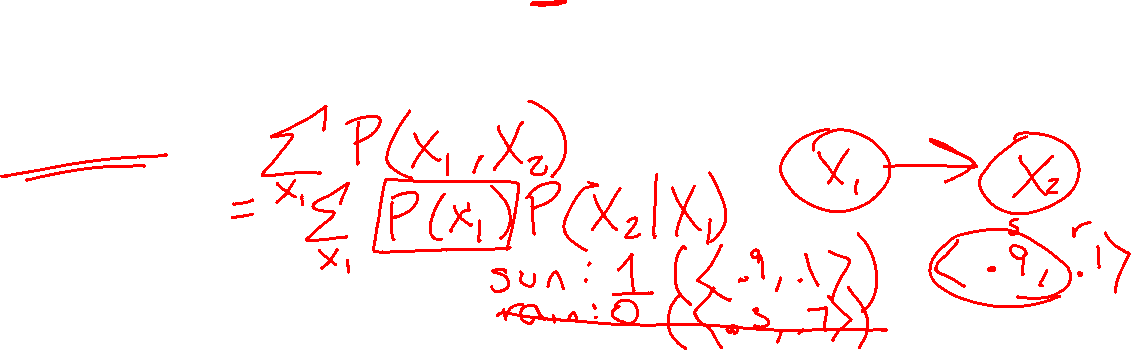 ∑ P(X₁, X₂)
x₁
= ∑ P(x₁) P(X₂|X₁)
x₁
sun: 1 (<.9, .1>)
rain: 0 (<.3, .7>)
X₁ → X₂
s r
<.9, .1>